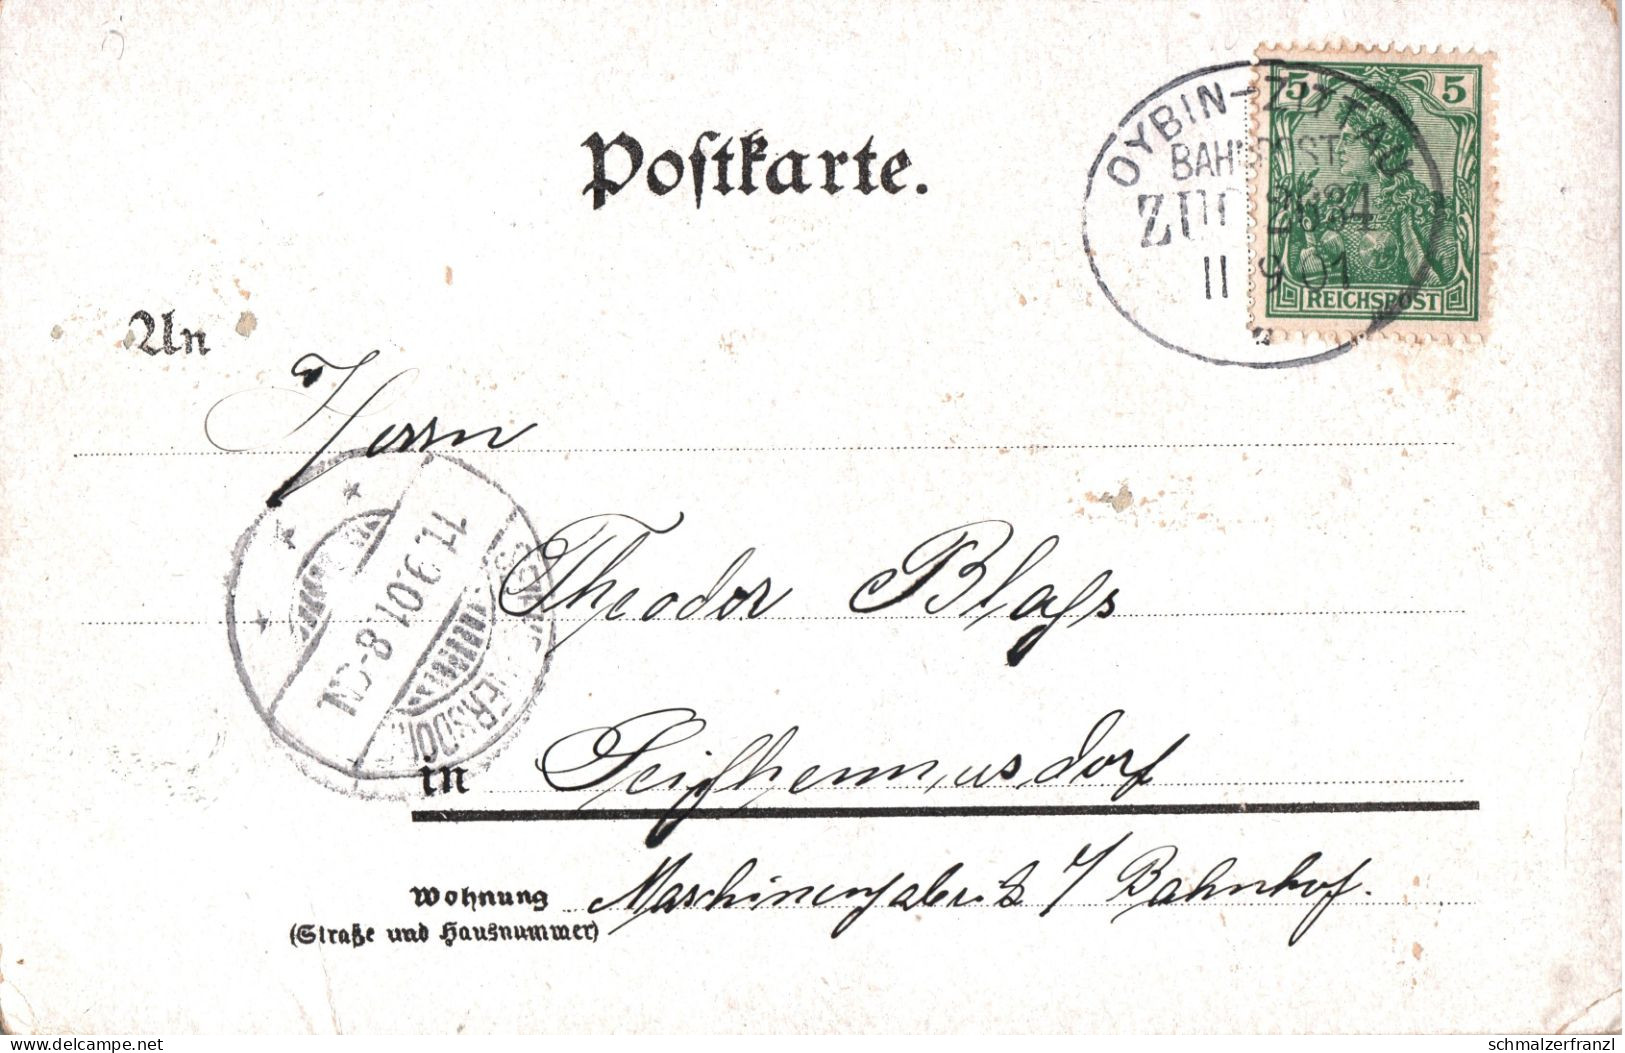 Postkarte.
OYBIN-ZITTAU
BAHNPOST
ZUG 2634
11 9 01
5 5
REICHSPOST
An
Herrn
11.9.01.8-9N.
Theodor Blaß
in Seifhennersdorf
Wohnung Maschinenfabrik / Bahnhof.
(Straße und Hausnummer)
delcampe.net
schmalzerfranzl